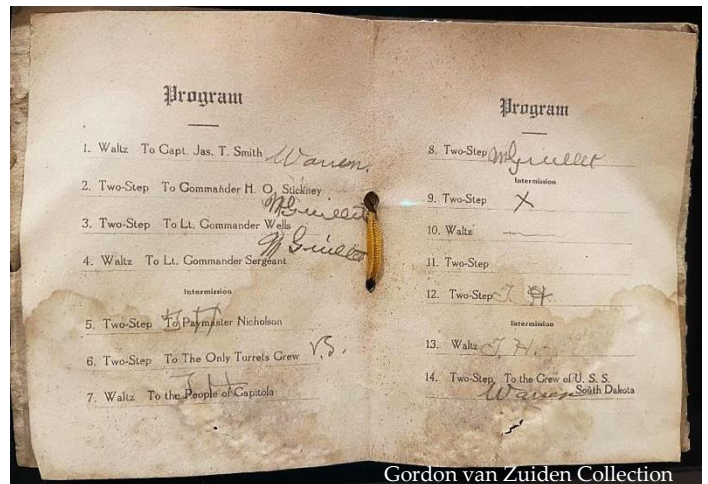 Program
1. Waltz To Capt. Jas. T. Smith Warren.
2. Two-Step To Commander H. O. Stickney
M Guillet
3. Two-Step To Lt. Commander Wells
M Guillet
4. Waltz To Lt. Commander Sergeant
Intermission
5. Two-Step To Paymaster Nicholson
6. Two-Step To The Only Turrets Crew
7. Waltz To the People of Capitola
Program
8. Two-Step M Guillet
Intermission
9. Two-Step X
10. Waltz
11. Two-Step
12. Two-Step J. H.
Intermission
13. Waltz J. H.
14. Two-Step To the Crew of U. S. S.
Warren South Dakota
Gordon van Zuiden Collection